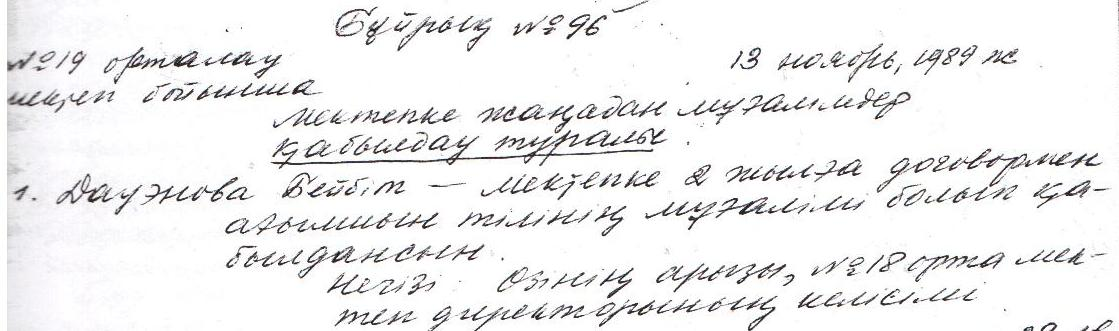 Бұйрық № 96
№19 орталау
мектеп бойынша
13 ноябрь, 1989 ж
Мектепке жаңадан мұғалімдер
қабылдау туралы.
1. Даужнова Бейбіт — мектепке 2 жылға договормен
ағылшын тілінің мұғалімі болып қа-
былдансын.
Негізі: Өзінің арызы, №18 орта мек-
теп директорының келісімі